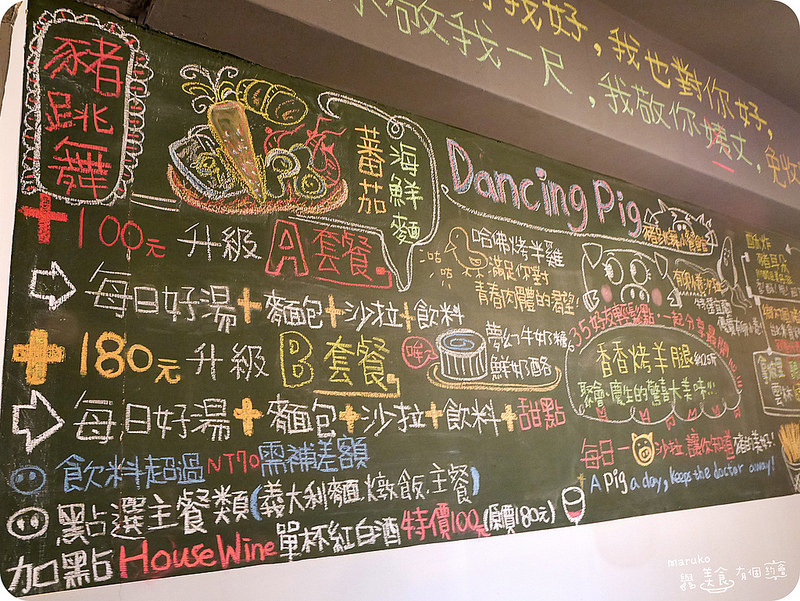 我好,我也對你好,
敬我一尺,我敬你姨丈,免收
豬跳舞
蕃茄
海鮮麵
Dancing Pig
+100元 升級A套餐
每日好湯+麵包+沙拉+飲料
+180元 升級B套餐
每日好湯+麵包+沙拉+飲料+甜點
飲料超過NT70需補差額
點選主餐類(義大利麵.燉飯.主餐)
加點HouseWine單杯紅白酒特價100元(原價180元)
咕咕
哈佛烤半雞
滿足你對
青春肉體的渴望
夢幻牛奶糖
鮮奶酪
一起分享
香香烤羊腿
聚會.慶生的驚喜大美味!!!
每日一沙拉 讓你知道豬的美好!
A Pig a day, keeps the doctor away!
maruko
美食有個